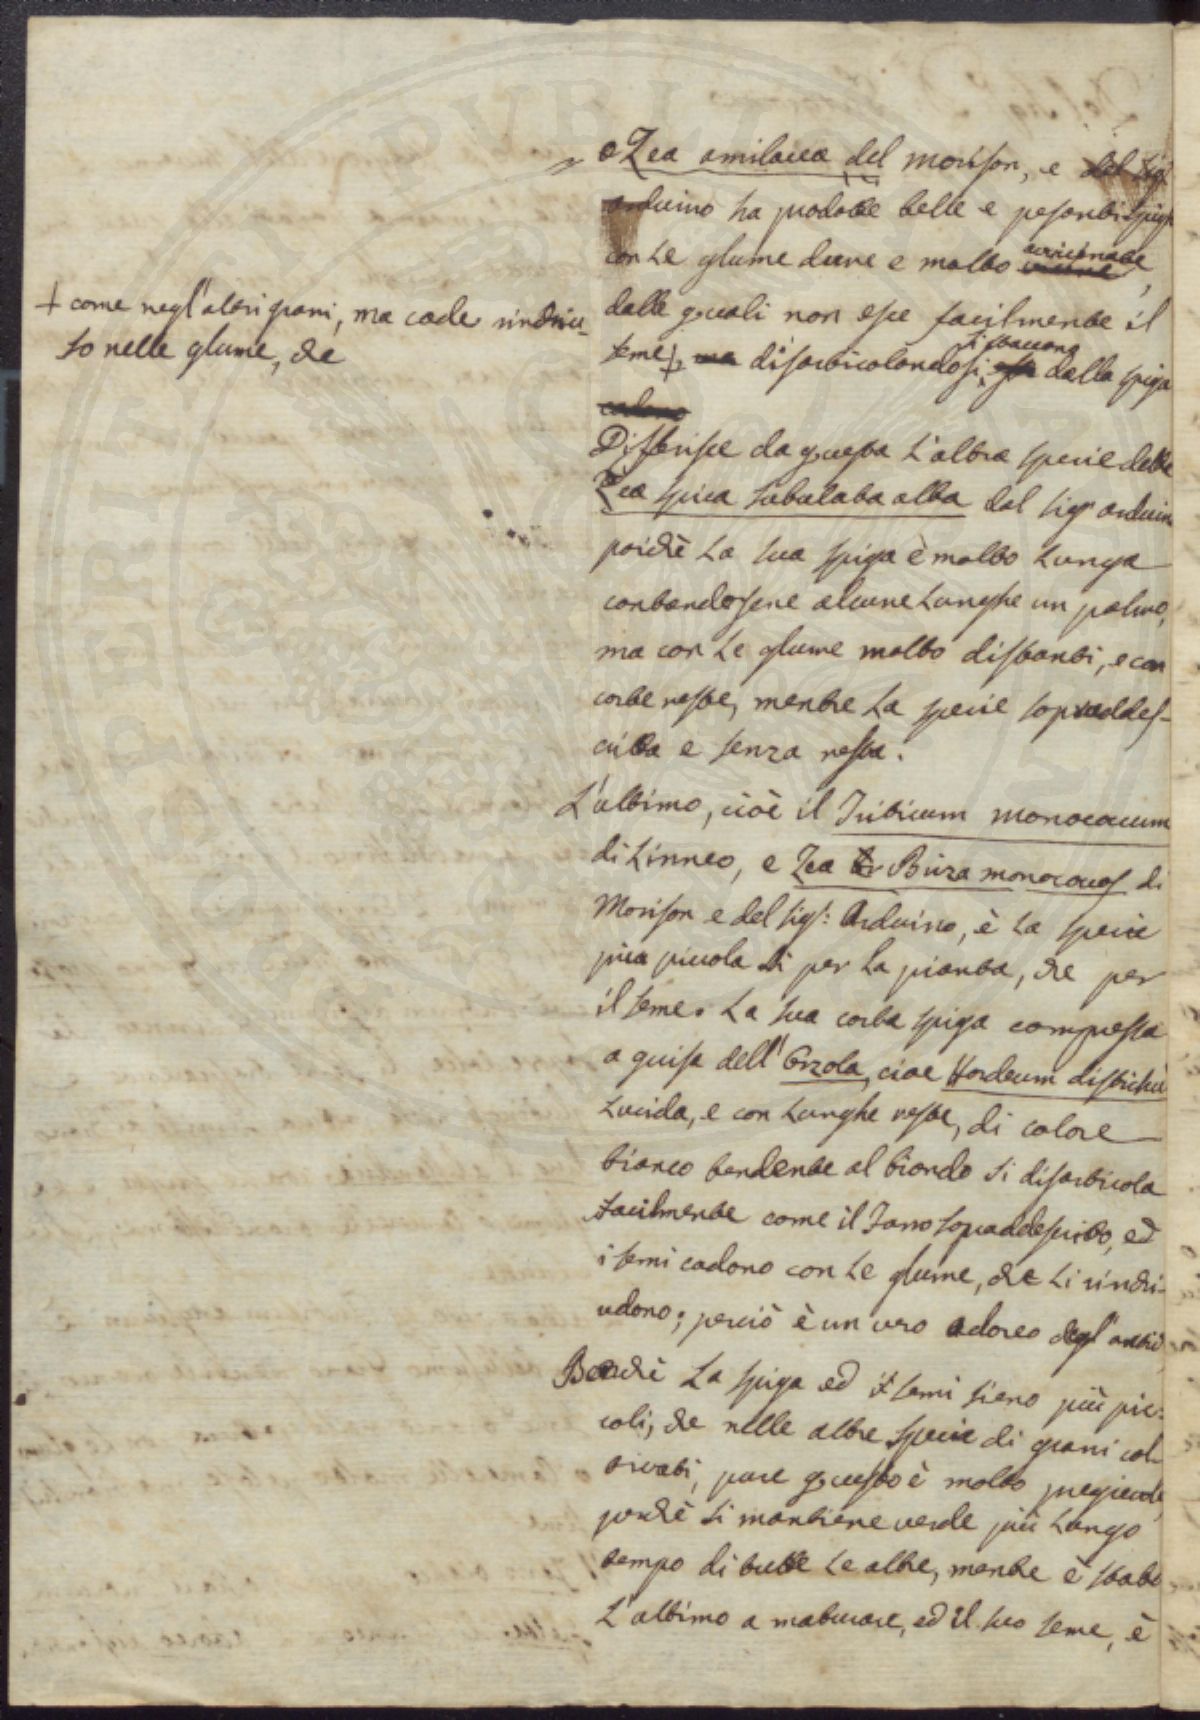 o Zea amilacea del Morison, e del Sigr
Arduino ha prodotte belle e pesanti spighe
con le glume dure e molto avvicinate,
dalle quali non esce facilmente il
seme +, ma disarticolandosi, si staccano dalla spiga
cadono
+ come negl'altri grani, ma cade rinchiu-
so nelle glume, che
Differisce da questa l'altra specie detta
Zea spica subulata alba dal Sigr Arduin
poichè la sua spiga è molto lunga
contandosene alcune lunghe un palmo,
ma con le glume molto distanti, e con
corte reste, mentre la specie sopraddes-
critta e senza resta.
L'ultimo, cioè il Triticum monococcum
di Linneo, e Zea Briza monococcos di
Morison e del Sigr: Arduino, è la specie
più piccola si per la pianta, che per
il seme. La sua corta spiga compressa
a guisa dell'Orzola, cioe Hordeum distichū
lucida, e con lunghe reste, di colore
bianco tendente al biondo si disarticola
facilmente come il Farro sopraddescritto, ed
i semi cadono con le glume, che li rinchi-
udono; perciò è un vero adoreo degl'antichi
Benchè la spiga ed i semi sieno più pic:
coli, che nelle altre specie di grani col-
tivati, pure questo è molto pregievole,
perchè si mantiene verde più lungo
tempo di tutte le altre, mentre è stato
l'ultimo a maturare, ed il suo seme, è